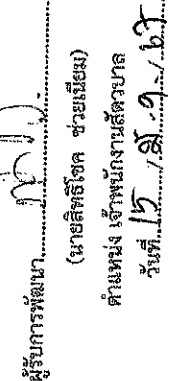 ผู้รับการพัฒนา
(นายสิทธิโชค ช่วยเนียม)
ตำแหน่ง เจ้าพนักงานสัตวบาล
วันที่ 15 / มี.ค. / 67